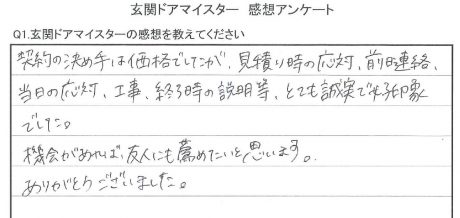 玄関ドアマイスター 感想アンケート
Q1.玄関ドアマイスターの感想を教えてください
契約の決め手は価格でしたが、見積り時の応対、前日連絡、
当日の応対、工事、終了時の説明等、とても誠実で好印象
でした。
機会があれば、友人にも薦めたいと思います。
ありがとうございました。